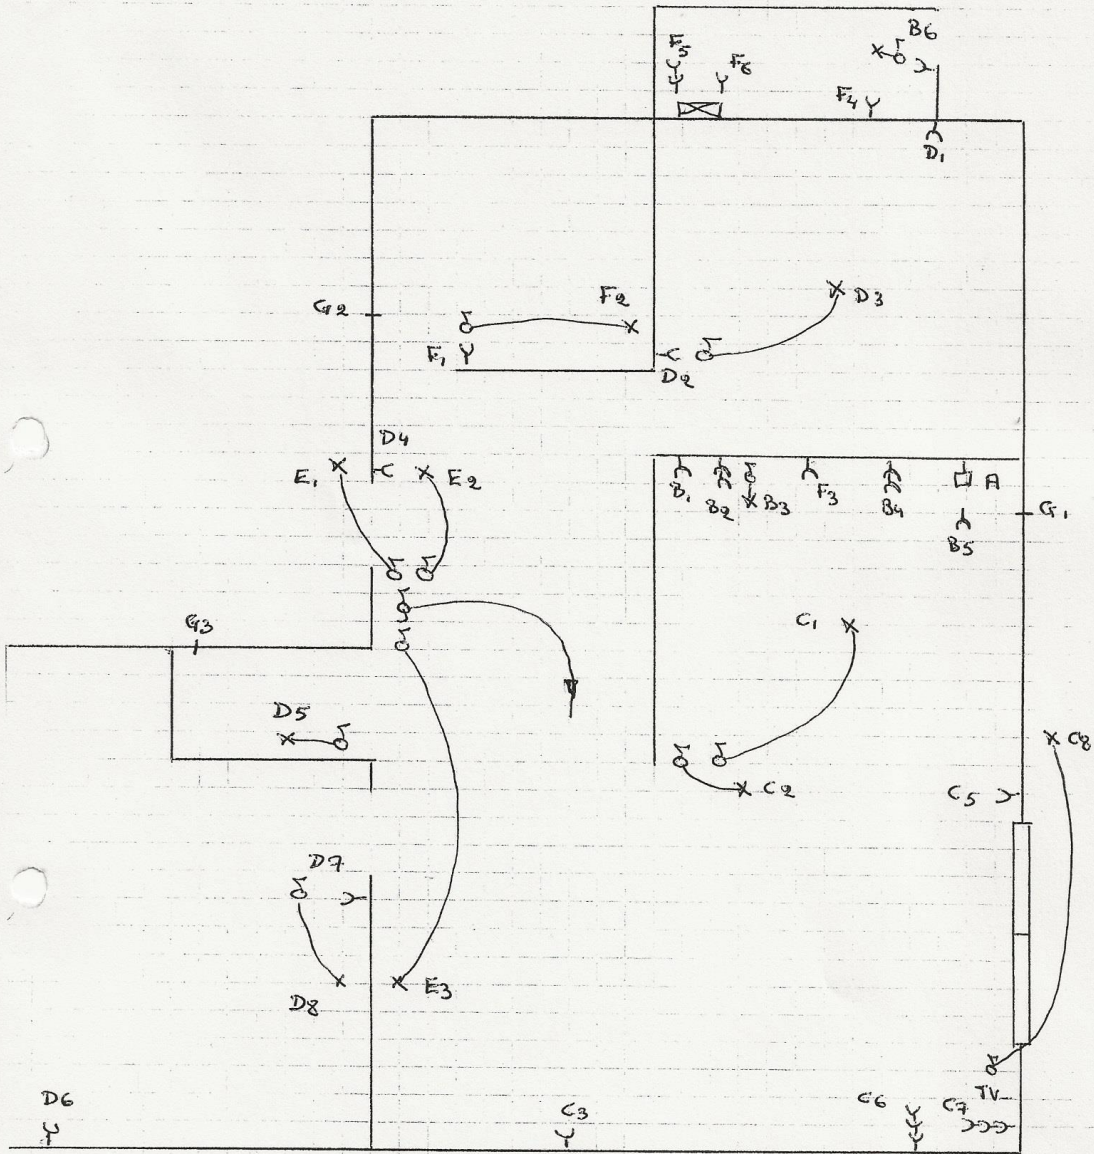 B6
F5
F6
F4
D1
G2
F2
D3
F1
D2
D4
E1
E2
B1
B2
B3
F3
B4
A
G1
B5
G3
C1
D5
C2
C8
C5
D7
D8
E3
TV
D6
C3
C6
C7